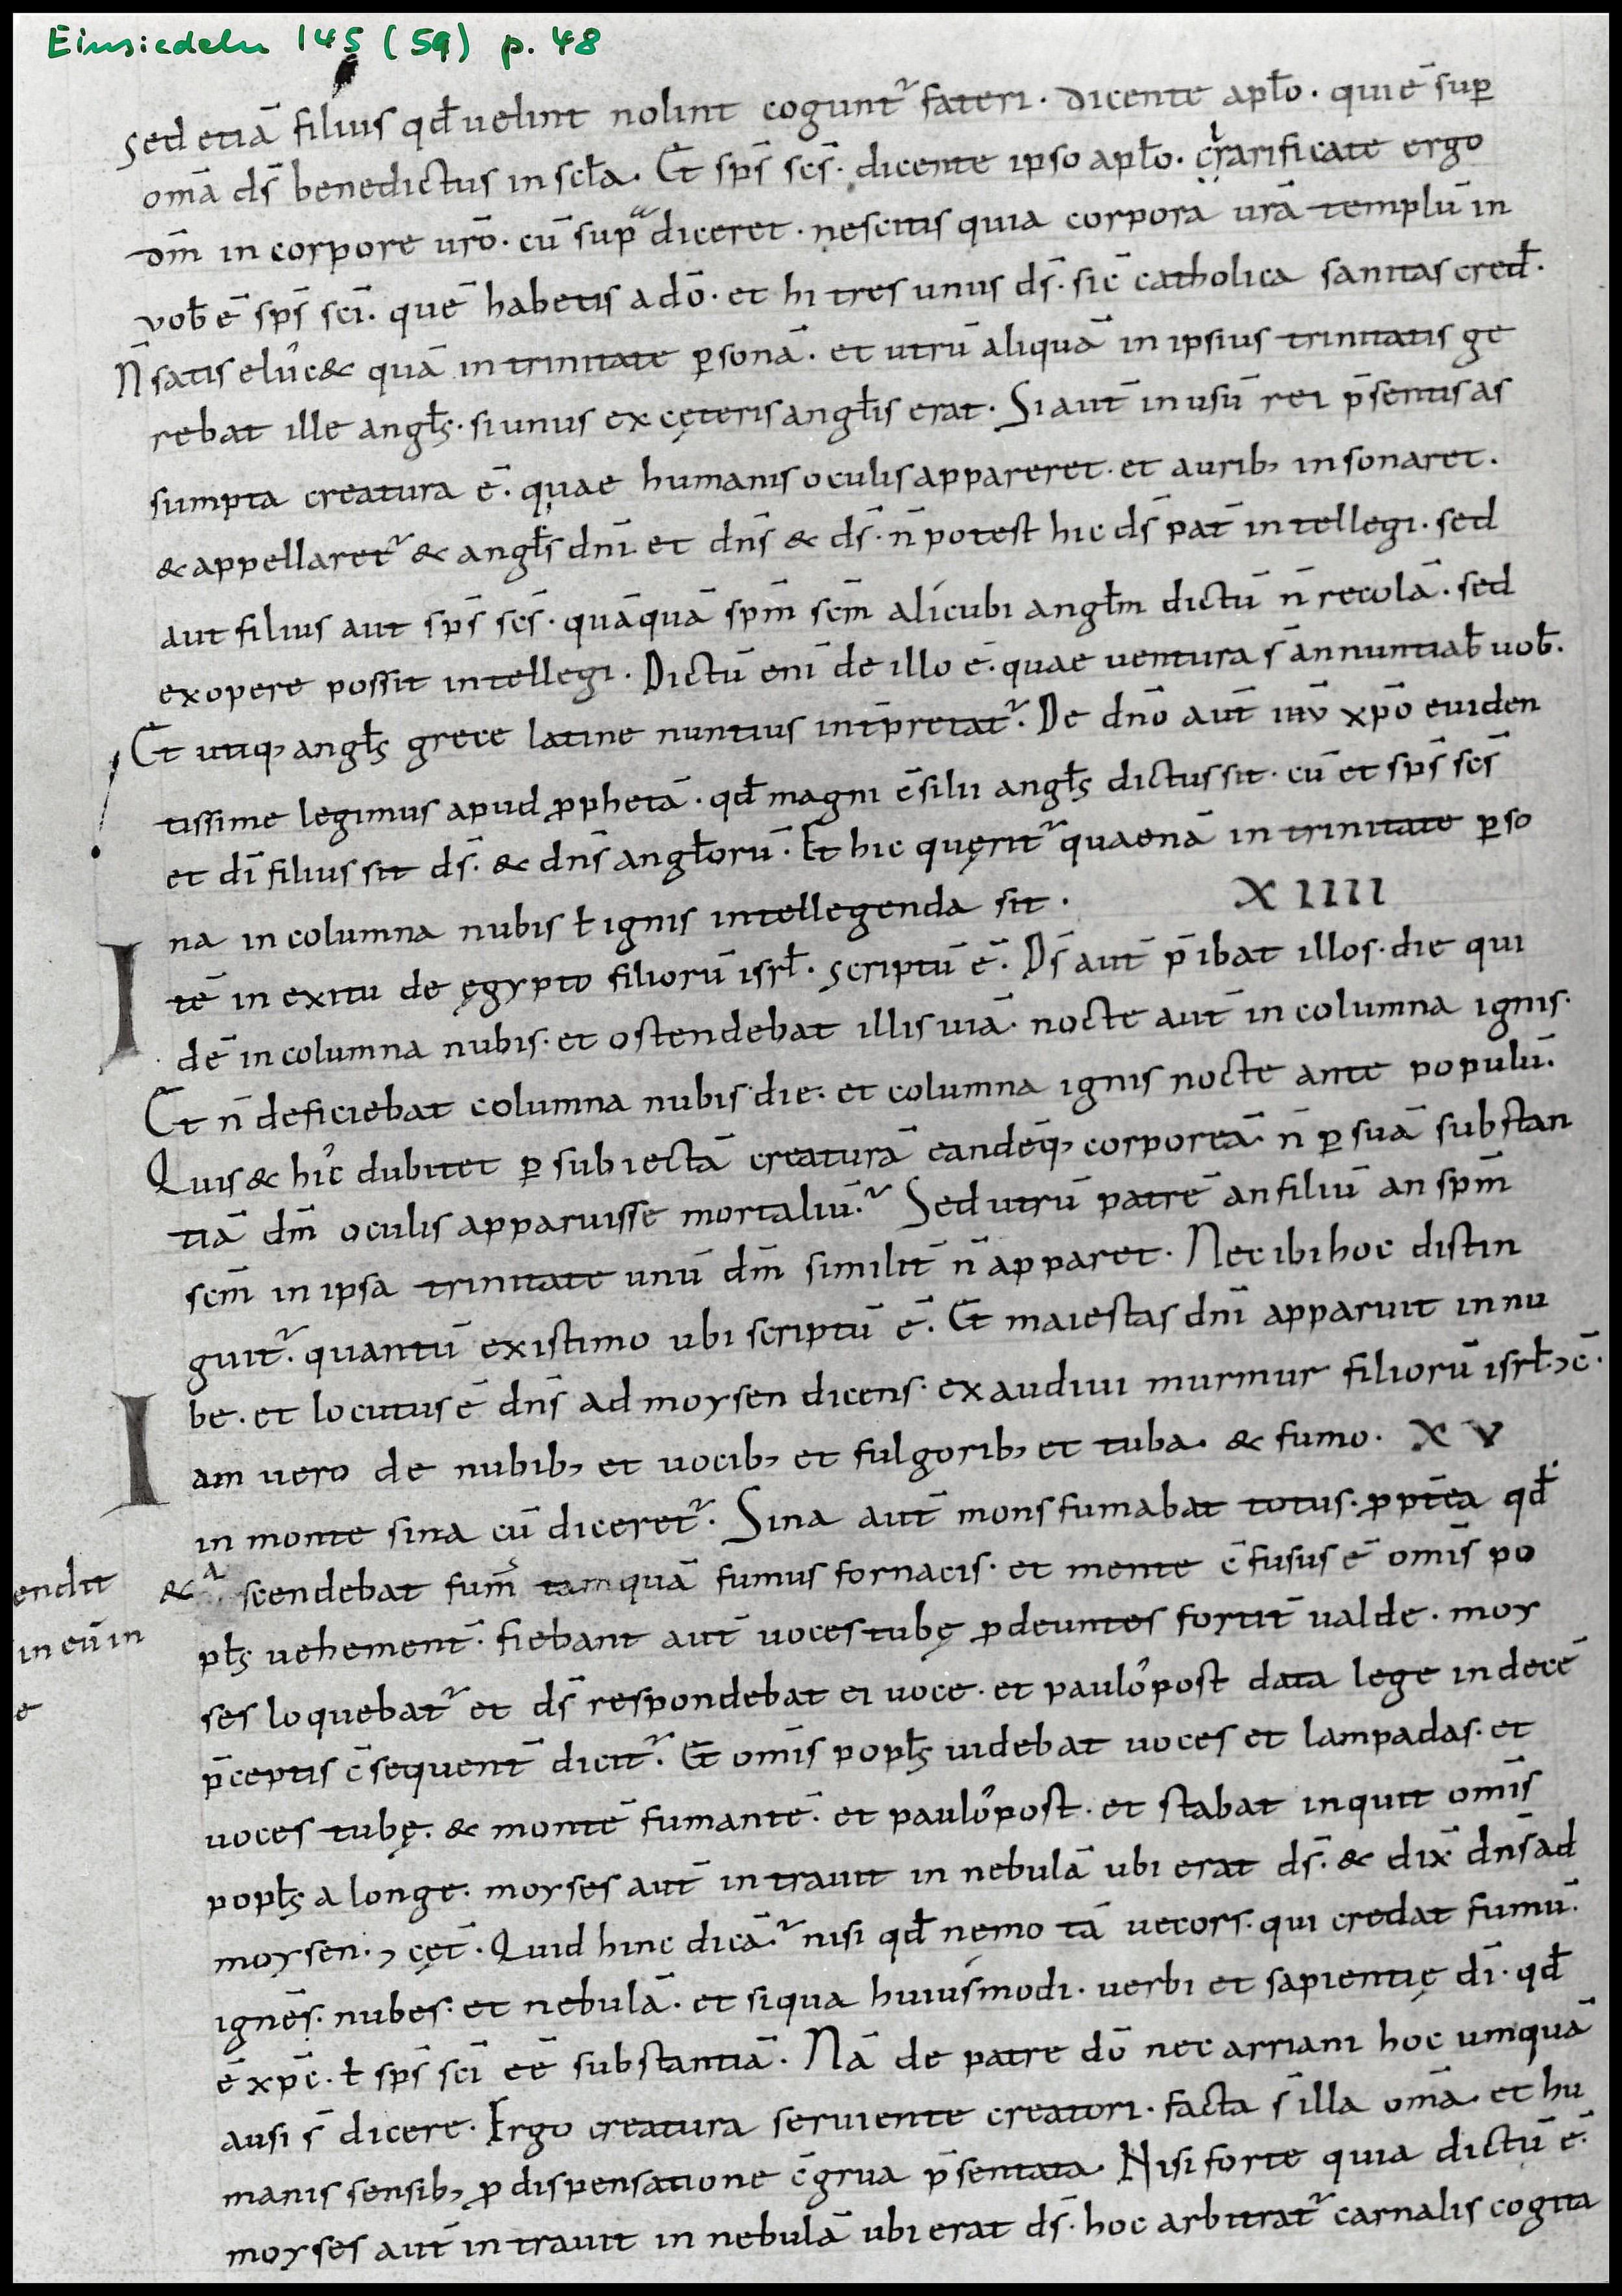 Einsiedeln 145 (59) p. 48
sed etiā filius qđ uelint nolint cogunt᷑ fateri · dicente apło · qui ē sup
om̄a ds̄ benedictus in scła. Et sp̄s sc̄s · dicente ipso apło · clarificate ergo
dm̄ in corpore ur̄o · cū supᵃ diceret · nescitis quia corpora ur̄a templū in
vob̄ ē sp̄s sc̄i · quē habetis a dō · et hi tres unus ds̄ · sic̄ catholica sanitas cred̄ ·
N̄ satis eluc& quā in trinitate ꝑsonā · et utrū aliquā in ipsius trinitatis ge
rebat ille angłs · si unus ex cęteris angłis erat · Si aut̄ in usū rei p̄sentis as
sumpta creatura ē · quae humanis oculis appareret · et aurib; insonaret ·
& appellaret᷑ & angłs dn̄i et dn̄s & ds̄ · n̄ potest hic ds̄ pat̄ intellegi · sed
aut filius aut sp̄s sc̄s · quāquā sp̄m sc̄m alicubi angłm dictū n̄ recolā · sed
ex opere possit intellegi · Dictū eni̅ de illo ē · quae ventura s̄ annuntiab̄ uob̄ ·
Et utiq; angłs grece latine nuntius int̄pretat᷑ · De dn̄o aut̄ ihv̄ xp̄o euiden
tissime legimus apud ꝓphetā · qđ magni c̄silii angłs dictus sit · cū et sp̄s sc̄s
et dī filius sit ds̄ · & dn̄s angłorū · Et hic quęrit᷑ quaenā in trinitate ꝑso
na in columna nubis ł ignis intellegenda sit · XIIII
Itē in exitu de ęgypto filiorū isrł · scriptū ē · Ds̄ aut̄ p̄ibat illos · die qui
dē in columna nubis · et ostendebat illis uiā · nocte aut̄ in columna ignis ·
Et n̄ deficiebat columna nubis die · et columna ignis nocte ante populū ·
Quis & hic dubitet ꝑ subiectā creaturā eandēq; corporeā n̄ ꝑ suā substan
tiā dm̄ oculis apparuisse mortaliū? Sed utrū patrē an filiū an sp̄m
sc̄m in ipsa trinitate unū dm̄ similit̄ n̄ apparet · Nec ibi hoc distin
guit᷑ · quantū existimo ubi scriptū ē · Et maiestas dn̄i apparuit in nu
be · et locutus ē dn̄s ad moysen dicens · exaudiui murmur filiorū isrł · ⁊ c̄ ·
Iam vero de nubib; et uocib; et fulgorib; et tuba · & fumo · XV
in monte sina cū diceret᷑ · Sina aut̄ mons fumabat totus · ꝓpt̄ea qđ
& a scendebat fum᷒ tamquā fumus fornacis · et mente c̄fusus ē om̄is po
endit
in eū in
e
płs uehement̄ · fiebant aut̄ uoces tubę ꝓdeuntes fortit̄ ualde · moy
ses loquebat᷑ et ds̄ respondebat ei uoce · et paulo post data lege in decē
p̄ceptis c̄sequent̄ dicit᷑ · Et om̄is popłs uidebat uoces et lampadas · et
uoces tubę · & montē fumantē · et paulo post · et stabat inquit om̄is
popłs a longe · moyses aut̄ intrauit in nebulā ubi erat ds̄ · & dix̄ dn̄s ad
moysen · ⁊ cęt̄ · Quid hinc dicā? nisi qđ nemo tā uecors · qui credat fumū ·
ignēs · nubes · et nebulā · et siqua huiusmodi · uerbi et sapientię dī · qđ
ē xp̄c · ł sp̄s sc̄i eē substantiā · Nā de patre dō nec arriani hoc umquā
ausi s̄ dicere · Ergo creatura seruiente creatori · facta s̄ illa om̄a · et hu
manis sensib; ꝓ dispensatione c̄grua p̄sentata · Nisi forte quia dictū ē ·
moyses aut̄ intrauit in nebulā ubi erat ds̄ · hoc arbitrat᷑ carnalis cogita